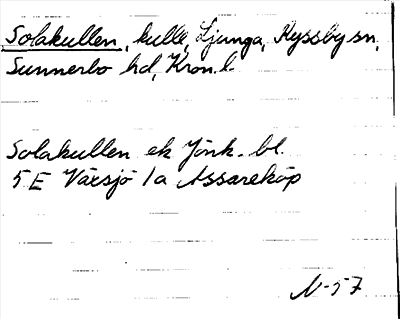 Solakullen, kulle, Ljunga, Ryssby sn,
Sunnerbo hd, Kron. l.
Solakullen ek Jönk. bl.
5 E Växsjö 1a Assareköp
N-57